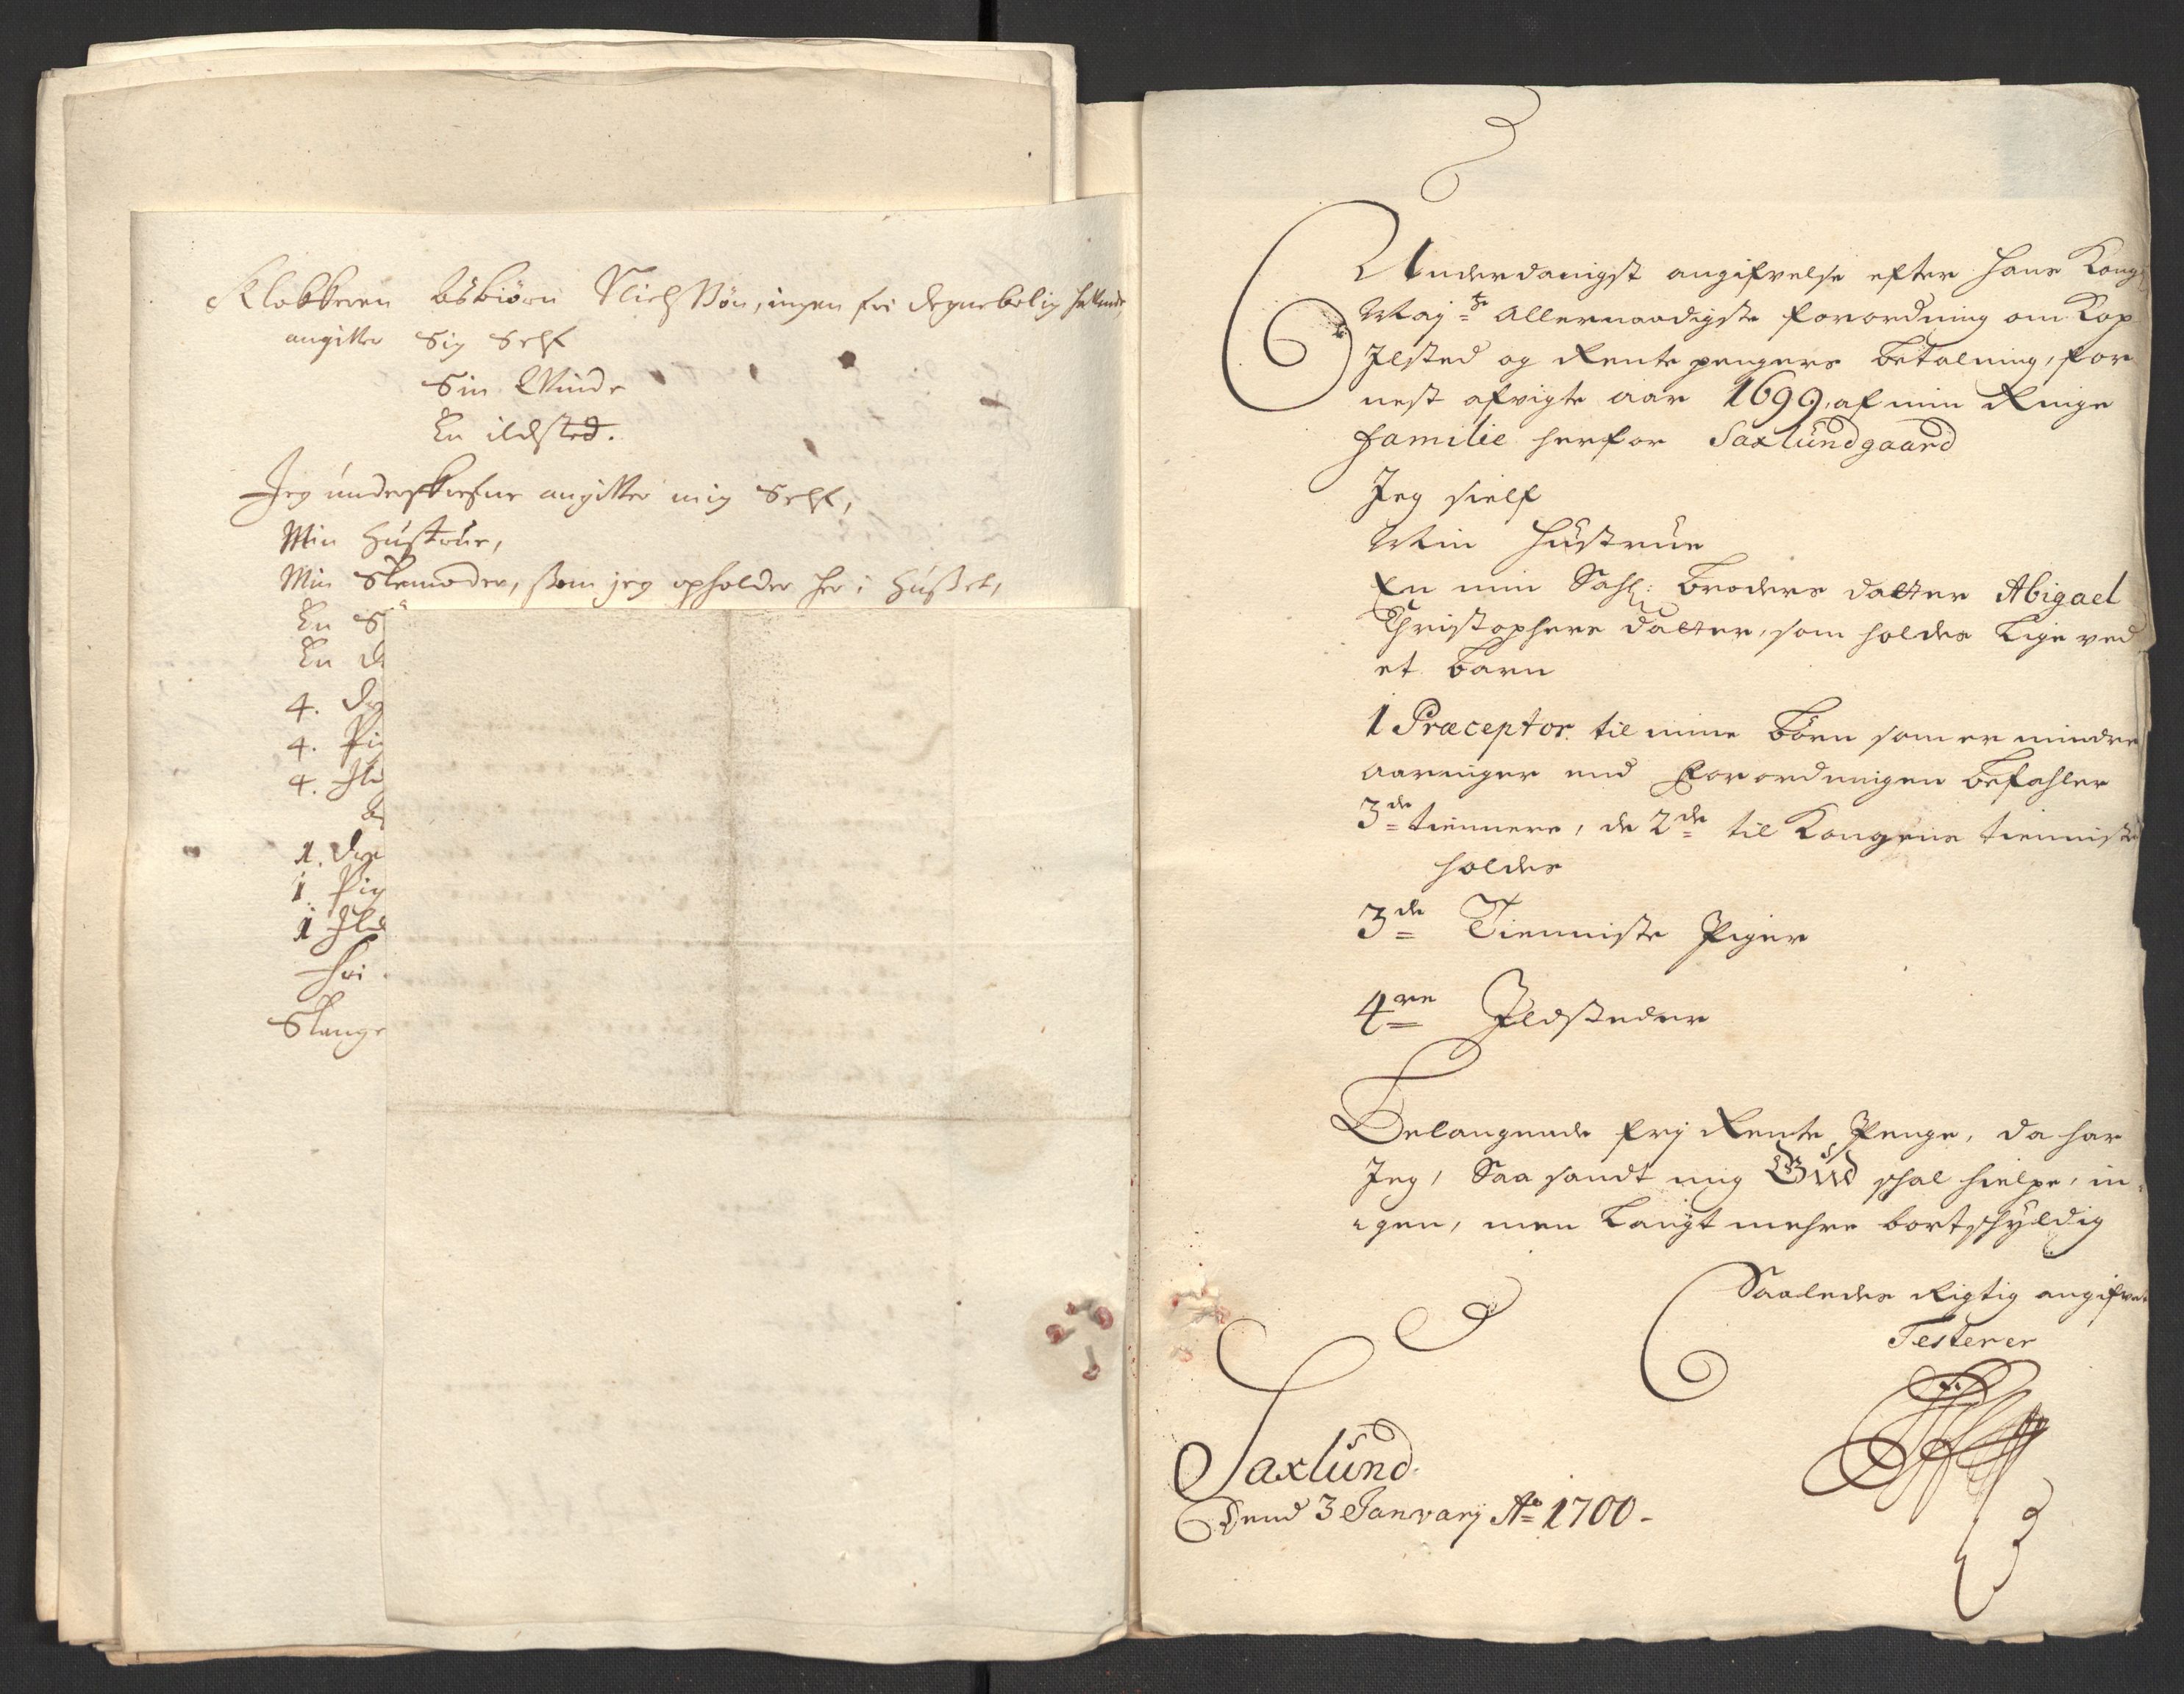 Klokkeren Asbiörn Nielssön, ingen fri degnebolig hafuende,
angitter Sig Self
Sin Quinde
En ildsted.
Jeg underskrefne angitter mig Self,
Min Hustrue,
Min Stemoder, som jeg opholder her i Husset,
En S
En D
4. Dr
4. Pi
4. Ild
1. Dre
1 Pig
1 Ild
Fri
Stange
Underdanigst angifvelse efter Hans Kong
Maj:ts Allernaadigste forordning om Kop
Ilsted og Rente pengers betalning, for
nest afvigte aar 1699, af min Ringe
familie herfor Saxlundgaard
Jeg sielf
Min Hustrue
En min Sahl: broders datter Abigael
Christophers datter, som holdes lige ved
et barn
1 Præceptor til mine börn som er mindre
aaringer end forordningen befahler
3de tiennere, de 2de til Kongens tienniste
holdes
3de Tienniste Piger
4re Ildsteder
Belangende frj Rente Penge, da har
Jeg, saa sandt mig Gud schal hielpe, in
gen, men langt mehre bortschyldig
Saaledes Rigtig angifvet
Testerer
Saxlund
Dend 3 January Ao 1700